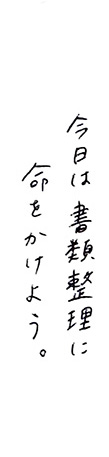 今日は書類整理に
命をかけよう。